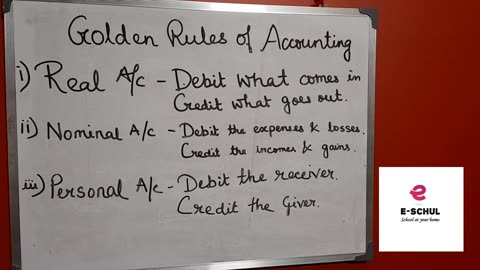 Golden Rules of Accounting
i) Real A/c - Debit what comes in
Credit what goes out.
ii) Nominal A/c - Debit the expenses & losses.
Credit the incomes & gains.
iii) Personal A/c - Debit the receiver.
Credit the Giver.
e
E-SCHUL
School at your home